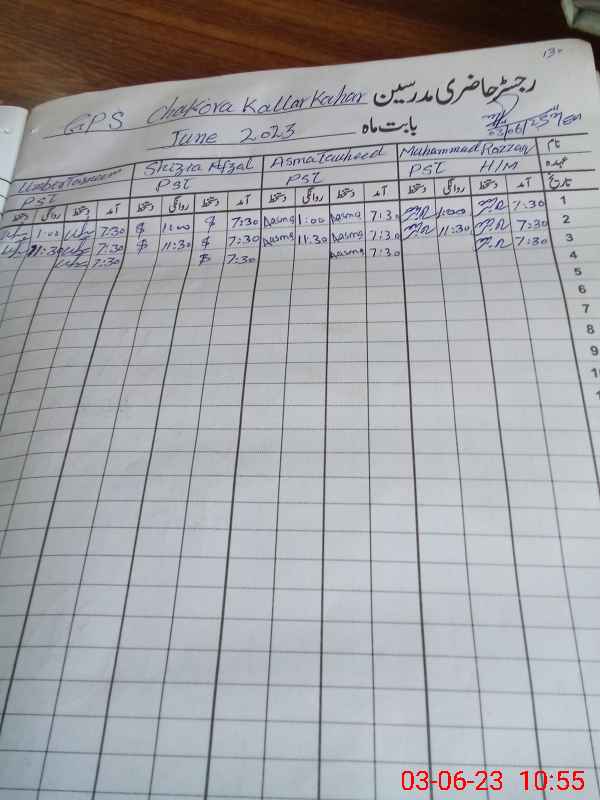 130
GPS Chakora Kallar Kahar رجسٹر حاضری مدرسین
June 2023 بابت ماہ
Shizra Afzal Asma Tauheed Muhammad Rozzaq نام
PST PST PST PST H/M عہدہ
دستخط روانگی دستخط آمد دستخط روانگی دستخط آمد دستخط روانگی دستخط آمد دستخط روانگی دستخط آمد تاریخ
1:00 7:30 $ 1:00 $ 7:30 Asma 1:00 Asma 7:30 1:00 7:30 1
11:30 7:30 $ 11:30 $ 7:30 Asma 11:30 Asma 7:30 11:30 7:30 2
7:30 $ 7:30 Asma 7:30 7:30 3
4
5
6
7
8
9
03-06-23 10:55